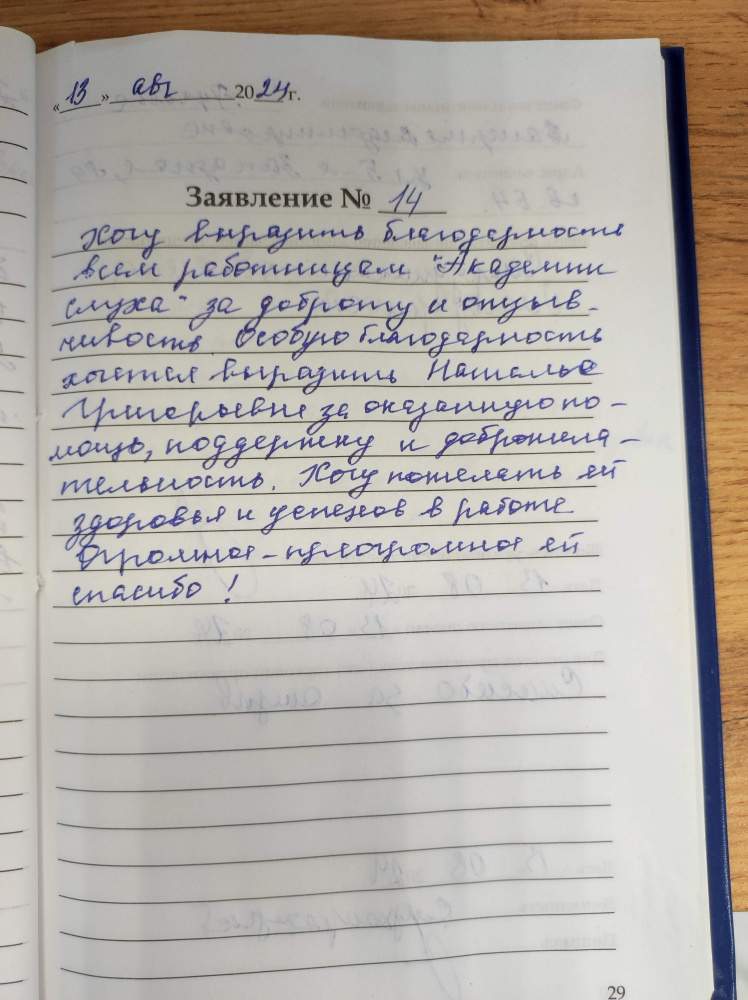 «13» авг 2024 г.
Заявление № 14
Хочу выразить благодарность
всем работницам "Академии
слуха" за доброту и отзыв-
чивость. Особую благодарность
хочется выразить Наталье
Григорьевне за оказанную по-
мощь, поддержку и доброжела-
тельность. Хочу пожелать ей
здоровья и успехов в работе
Огромное-преогромное ей
спасибо!
29